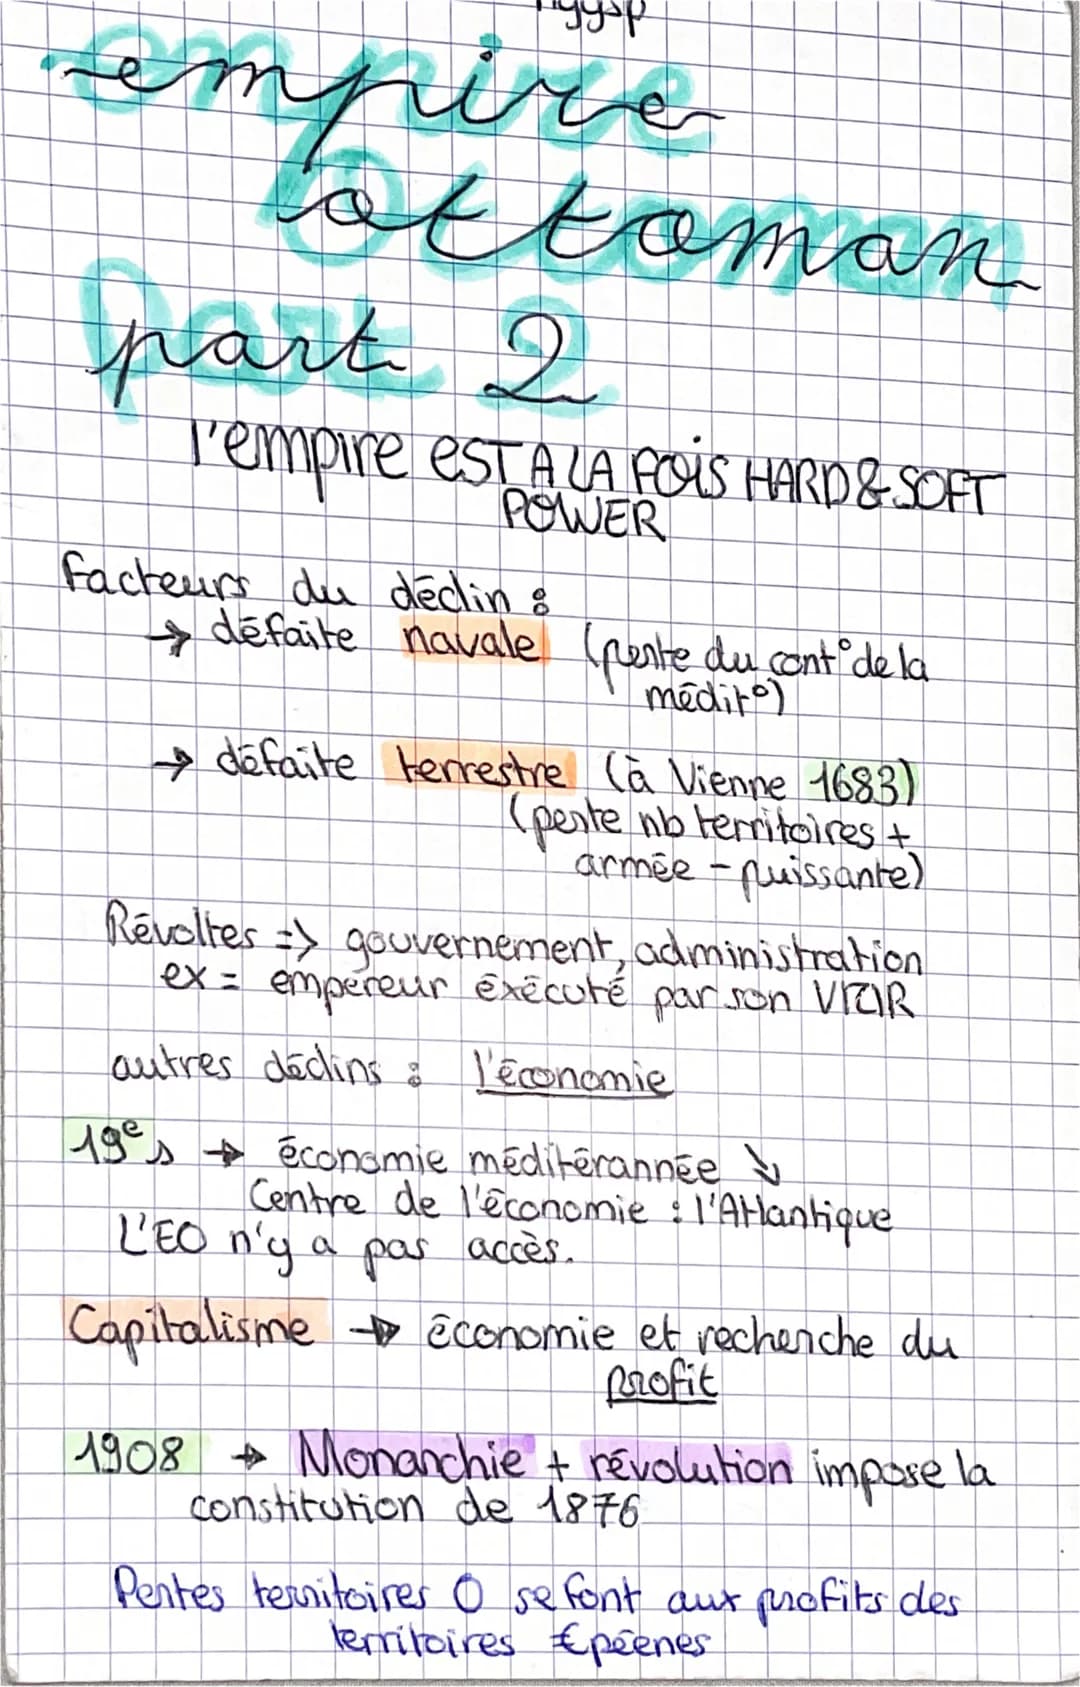 hggsp
empire
ottoman
part 2
l'empire EST A LA FOIS HARD & SOFT
POWER
facteurs du déclin :
→ défaite navale (perte du cont° de la
médit°)
→ défaite terrestre (à Vienne 1683)
(perte nb territoires +
armée - puissante)
Révoltes => gouvernement, administration
ex = empereur éxécuté par son VIZIR
autres déclins : l'économie
19e s → économie méditérannée ↘
Centre de l'économie : l'Atlantique
L'EO n'y a pas accès.
Capitalisme → économie et recherche du
profit
1908 → Monarchie + révolution impose la
constitution de 1876
Pertes territoires O se font aux profits des
territoires €péenes